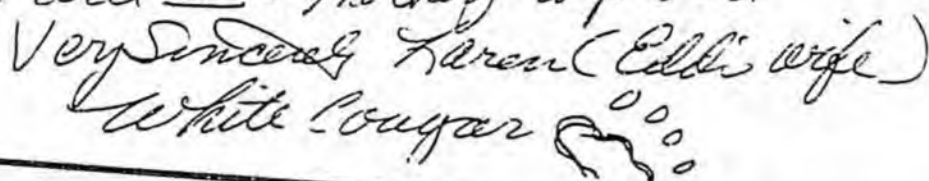 Very Sincerely Karen (Eddi wife)
White Cougar